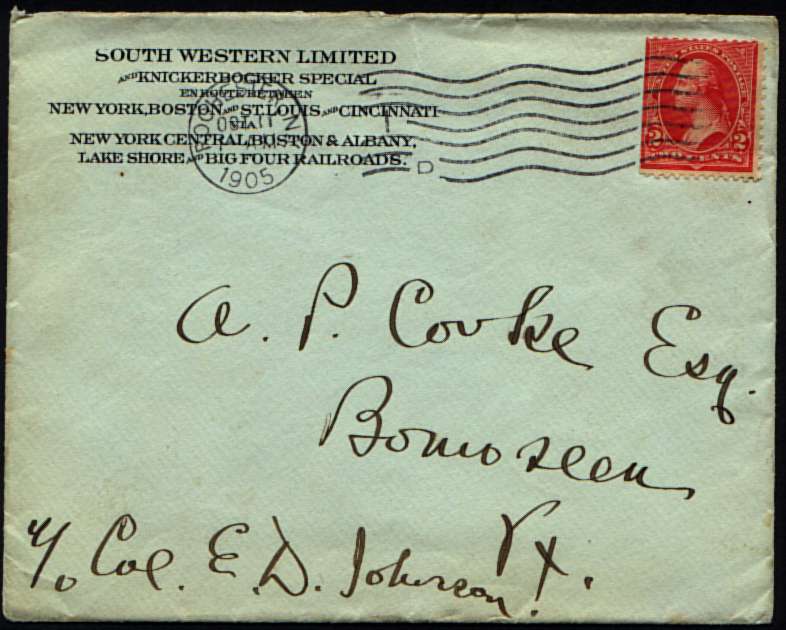 SOUTH WESTERN LIMITED
AND KNICKERBOCKER SPECIAL
EN ROUTE BETWEEN
NEW YORK, BOSTON AND ST. LOUIS AND CINCINNATI
VIA
NEW YORK CENTRAL, BOSTON & ALBANY,
LAKE SHORE AND BIG FOUR RAILROADS.
1905
D
2 CENTS 2
A. P. Cooke Esq.
Bomoseen
Vt.
c/o Col. E. D. Johnson.